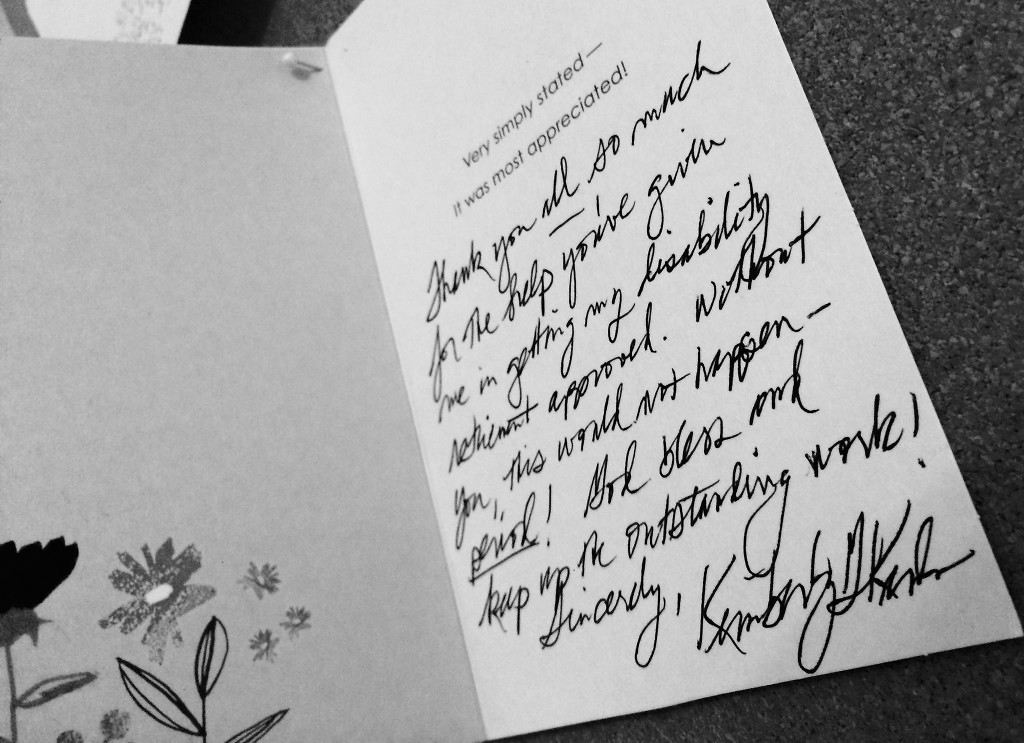 Very simply stated —
It was most appreciated!
Thank you all so much
for the help you've given
me in getting my disability
retirement approved. Without
you, this would not happen —
period! God bless and
keep up the outstanding work!
Sincerely, Kimberly